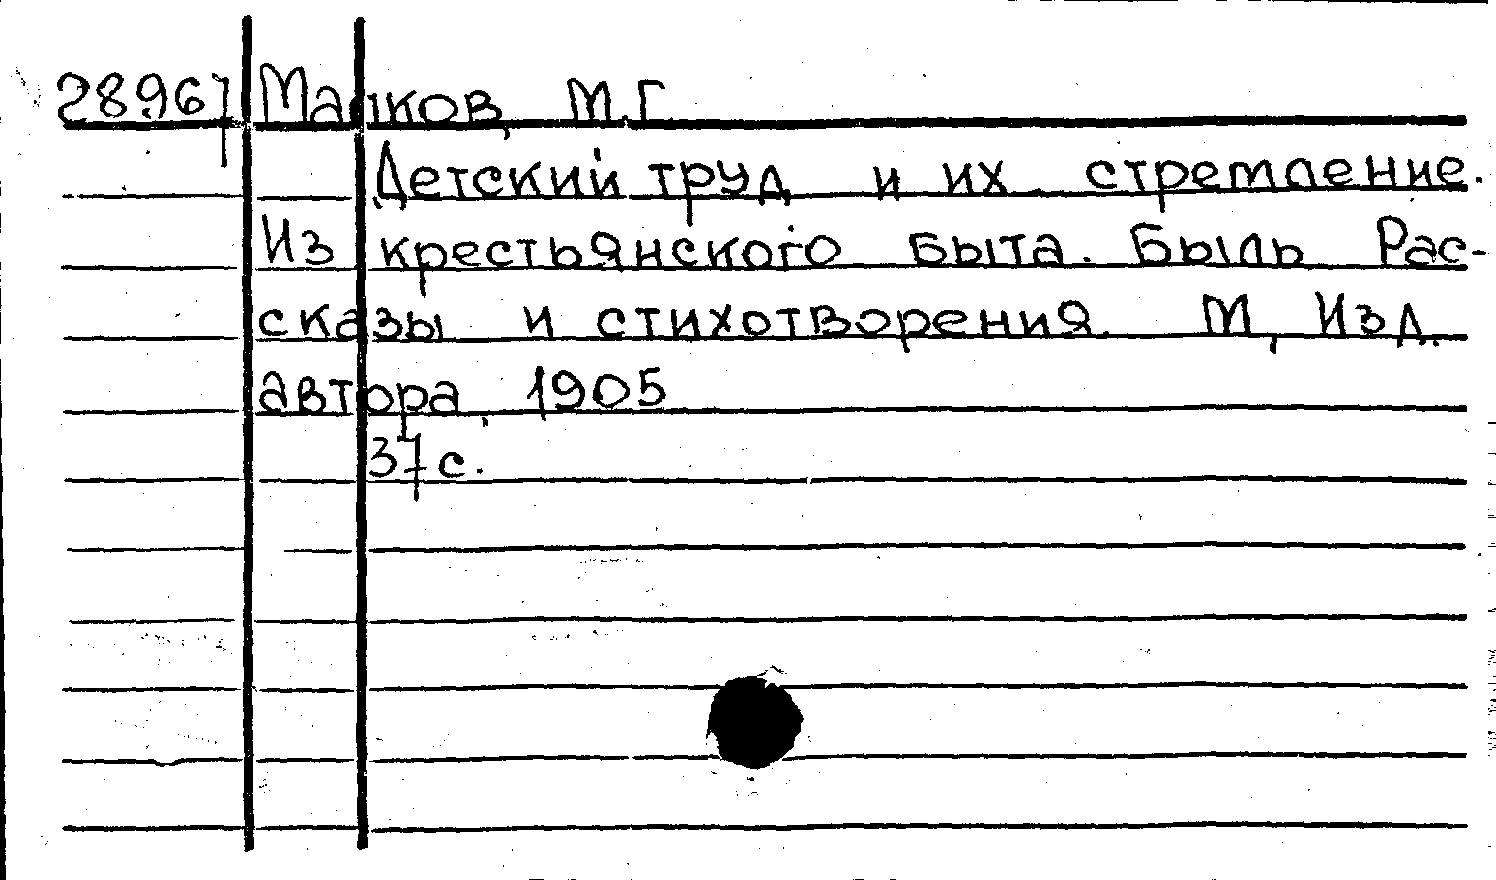 28967 М.Г.
Детский труд и их стремление.
Из крестьянского быта. Быль Рас-
сказы и стихотворения. М, Изд.
автора, 1905
37с.